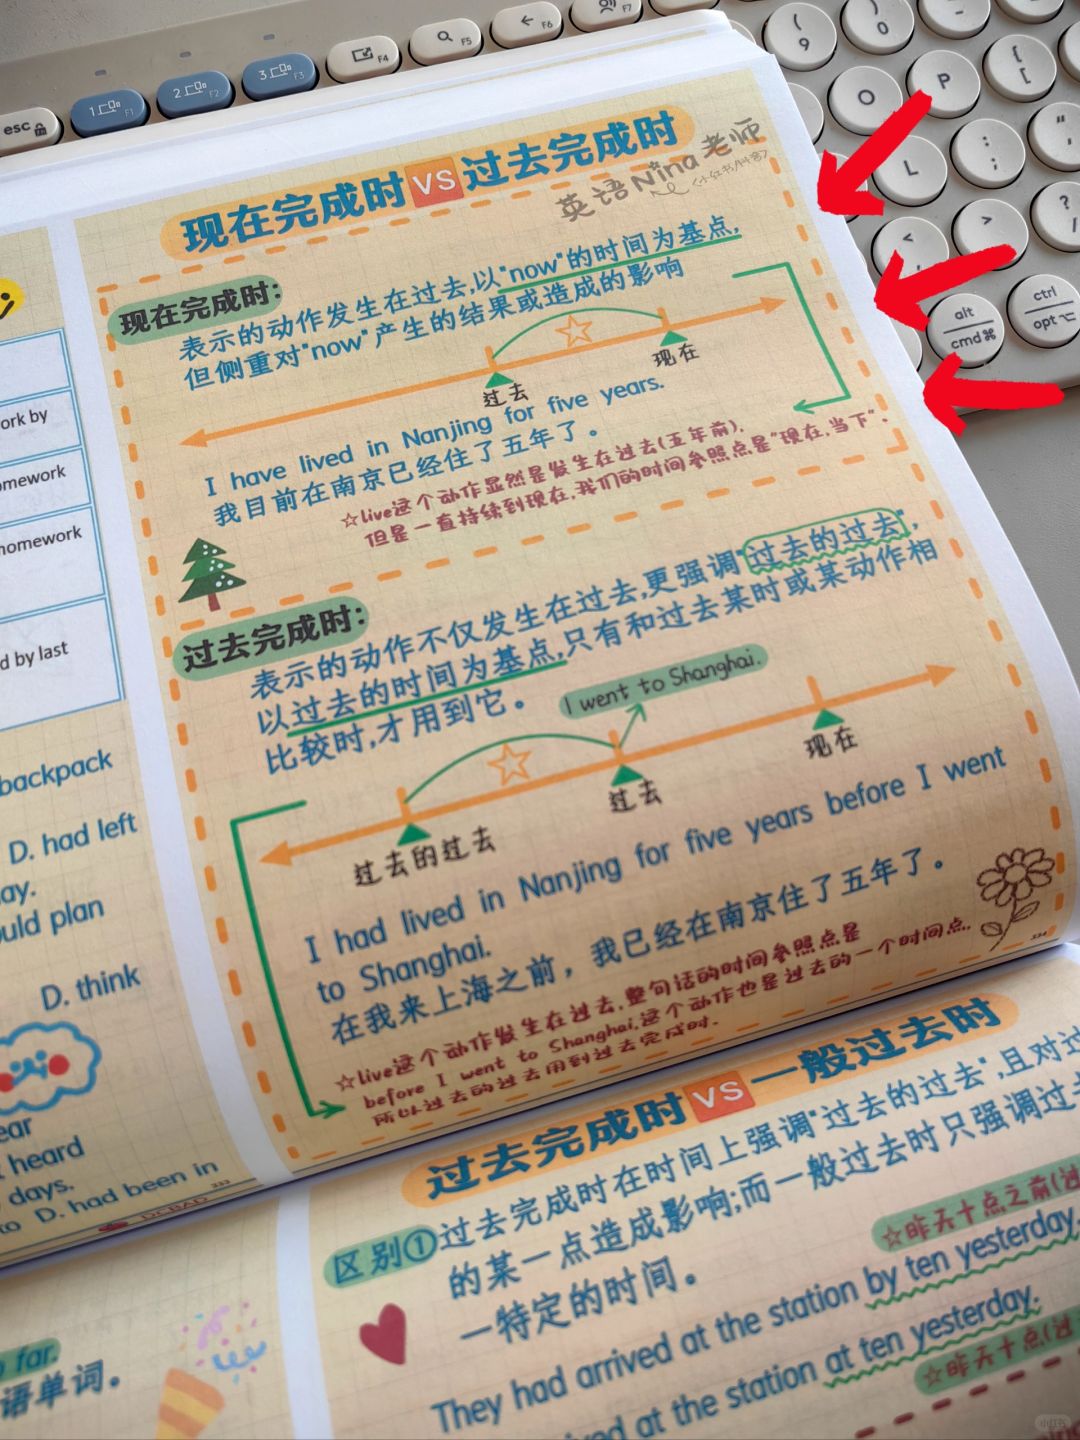 esc
1
F1
2
F2
3
F3
F4
F5
F6
F7
(
9
)
0
-
O
P
{
[
L
:
;
"
<
,
>
.
?
/
alt
cmd ⌘
ctrl
opt ⌥
现在完成时 VS 过去完成时
英语Nina老师
(小红书/抖音)
现在完成时:
表示的动作发生在过去,以"now"的时间为基点,
但侧重对"now"产生的结果或造成的影响
过去
现在
I have lived in Nanjing for five years.
我目前在南京已经住了五年了。
☆live这个动作显然是发生在过去(五年前),
但是一直持续到现在,我们的时间参照点是"现在,当下".
过去完成时:
表示的动作不仅发生在过去,更强调"过去的过去",
以过去的时间为基点,只有和过去某时或某动作相
比较时,才用到它。
I went to Shanghai.
过去的过去
过去
现在
I had lived in Nanjing for five years before I went
to Shanghai.
在我来上海之前，我已经在南京住了五年了。
☆live这个动作发生在过去,整句话的时间参照点是
before I went to Shanghai,这个动作也是过去的一个时间点,
所以过去的过去用到过去完成时.
334
ork by
omework
homework
d by last
backpack
D. had left
ay.
ould plan
D. think
ear
t heard
days.
to D. had been in
DCBAD
333
过去完成时 VS 一般过去时
区别①
过去完成时在时间上强调"过去的过去",且对过
的某一点造成影响;而一般过去时只强调过去
一特定的时间。
☆昨天十点之前(过
They had arrived at the station by ten yesterday.
ved at the station at ten yesterday.
☆昨天十点(过
o far.
语单词。
小红书